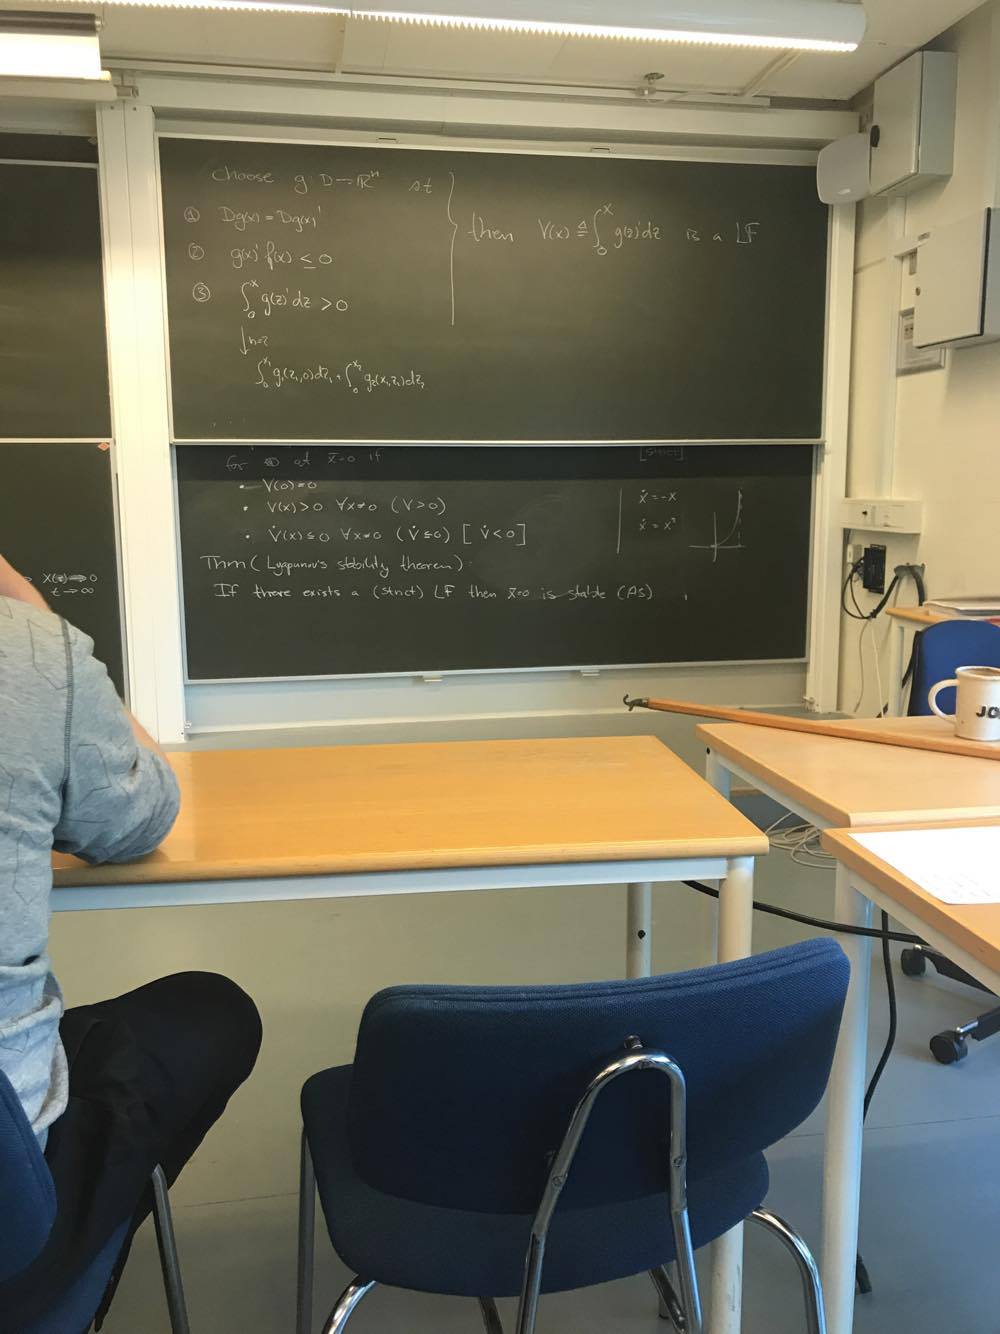 choose g: D → ℝⁿ st
① Dg(x) = Dg(x)'
② g(x)' f(x) ≤ 0
③ ∫₀ˣ g(z)' dz > 0
↓ n=2
∫₀^x₁ g₁(z₁,0)dz₁ + ∫₀^x₂ g₂(x₁,z₂)dz₂
then V(x) ≜ ∫₀ˣ g(z)' dz is a LF
for at x̄=0 if
[strict]
• V(0)=0
• V(x)>0 ∀x≠0 (V>0)
• V̇(x)≤0 ∀x≠0 (V̇≤0) [V̇<0]
Thm (Lyapunov's stability theorem):
If there exists a (strict) LF then x̄=0 is stable (AS)
ẋ=-x
ẋ=x²
x(t)→0
t→∞
JO